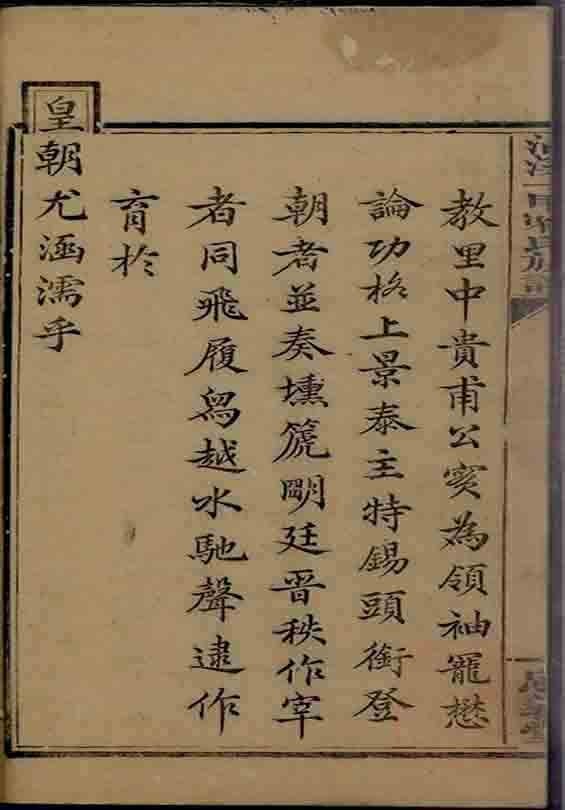 教里中貴甫公實為領袖寵懋
論功格上景泰主特錫頭銜登
朝者並奏壎篪明廷晋秩作宰
者同飛履舄越水馳聲逮作
育於
皇朝尤涵濡乎